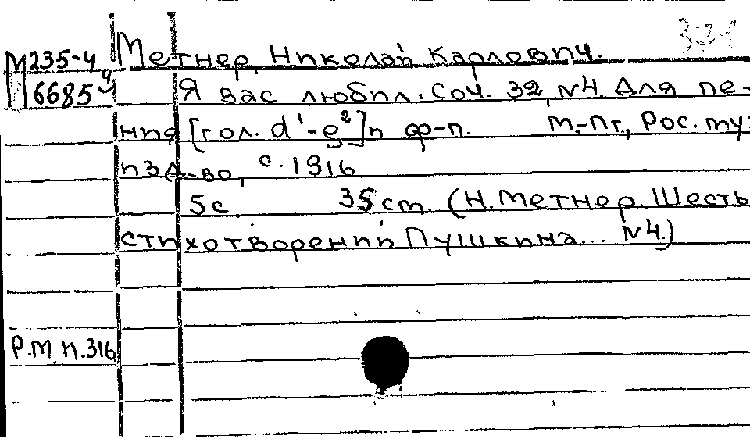 М235-4 Метнер, Николай Карлович.
6685 Я вас любил. Соч. 32, №4. Для пе-
ния [гол. d¹-e²] и ф-п. М.-Пг, Рос. муз
изд-во, с. 1916
5с 35см (Н. Метнер. Шесть
стихотворений Пушкина... №4.)
Р.М.И.316